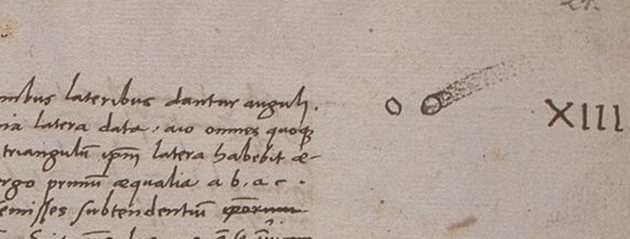 24.
nibus lateribus dantur anguli.
nia latera data, aio omnes quoq
triangulū ipm latera habebit æ-
ergo primū æqualia a b, a c .
emisses subtendentiū ipsorum
XIII